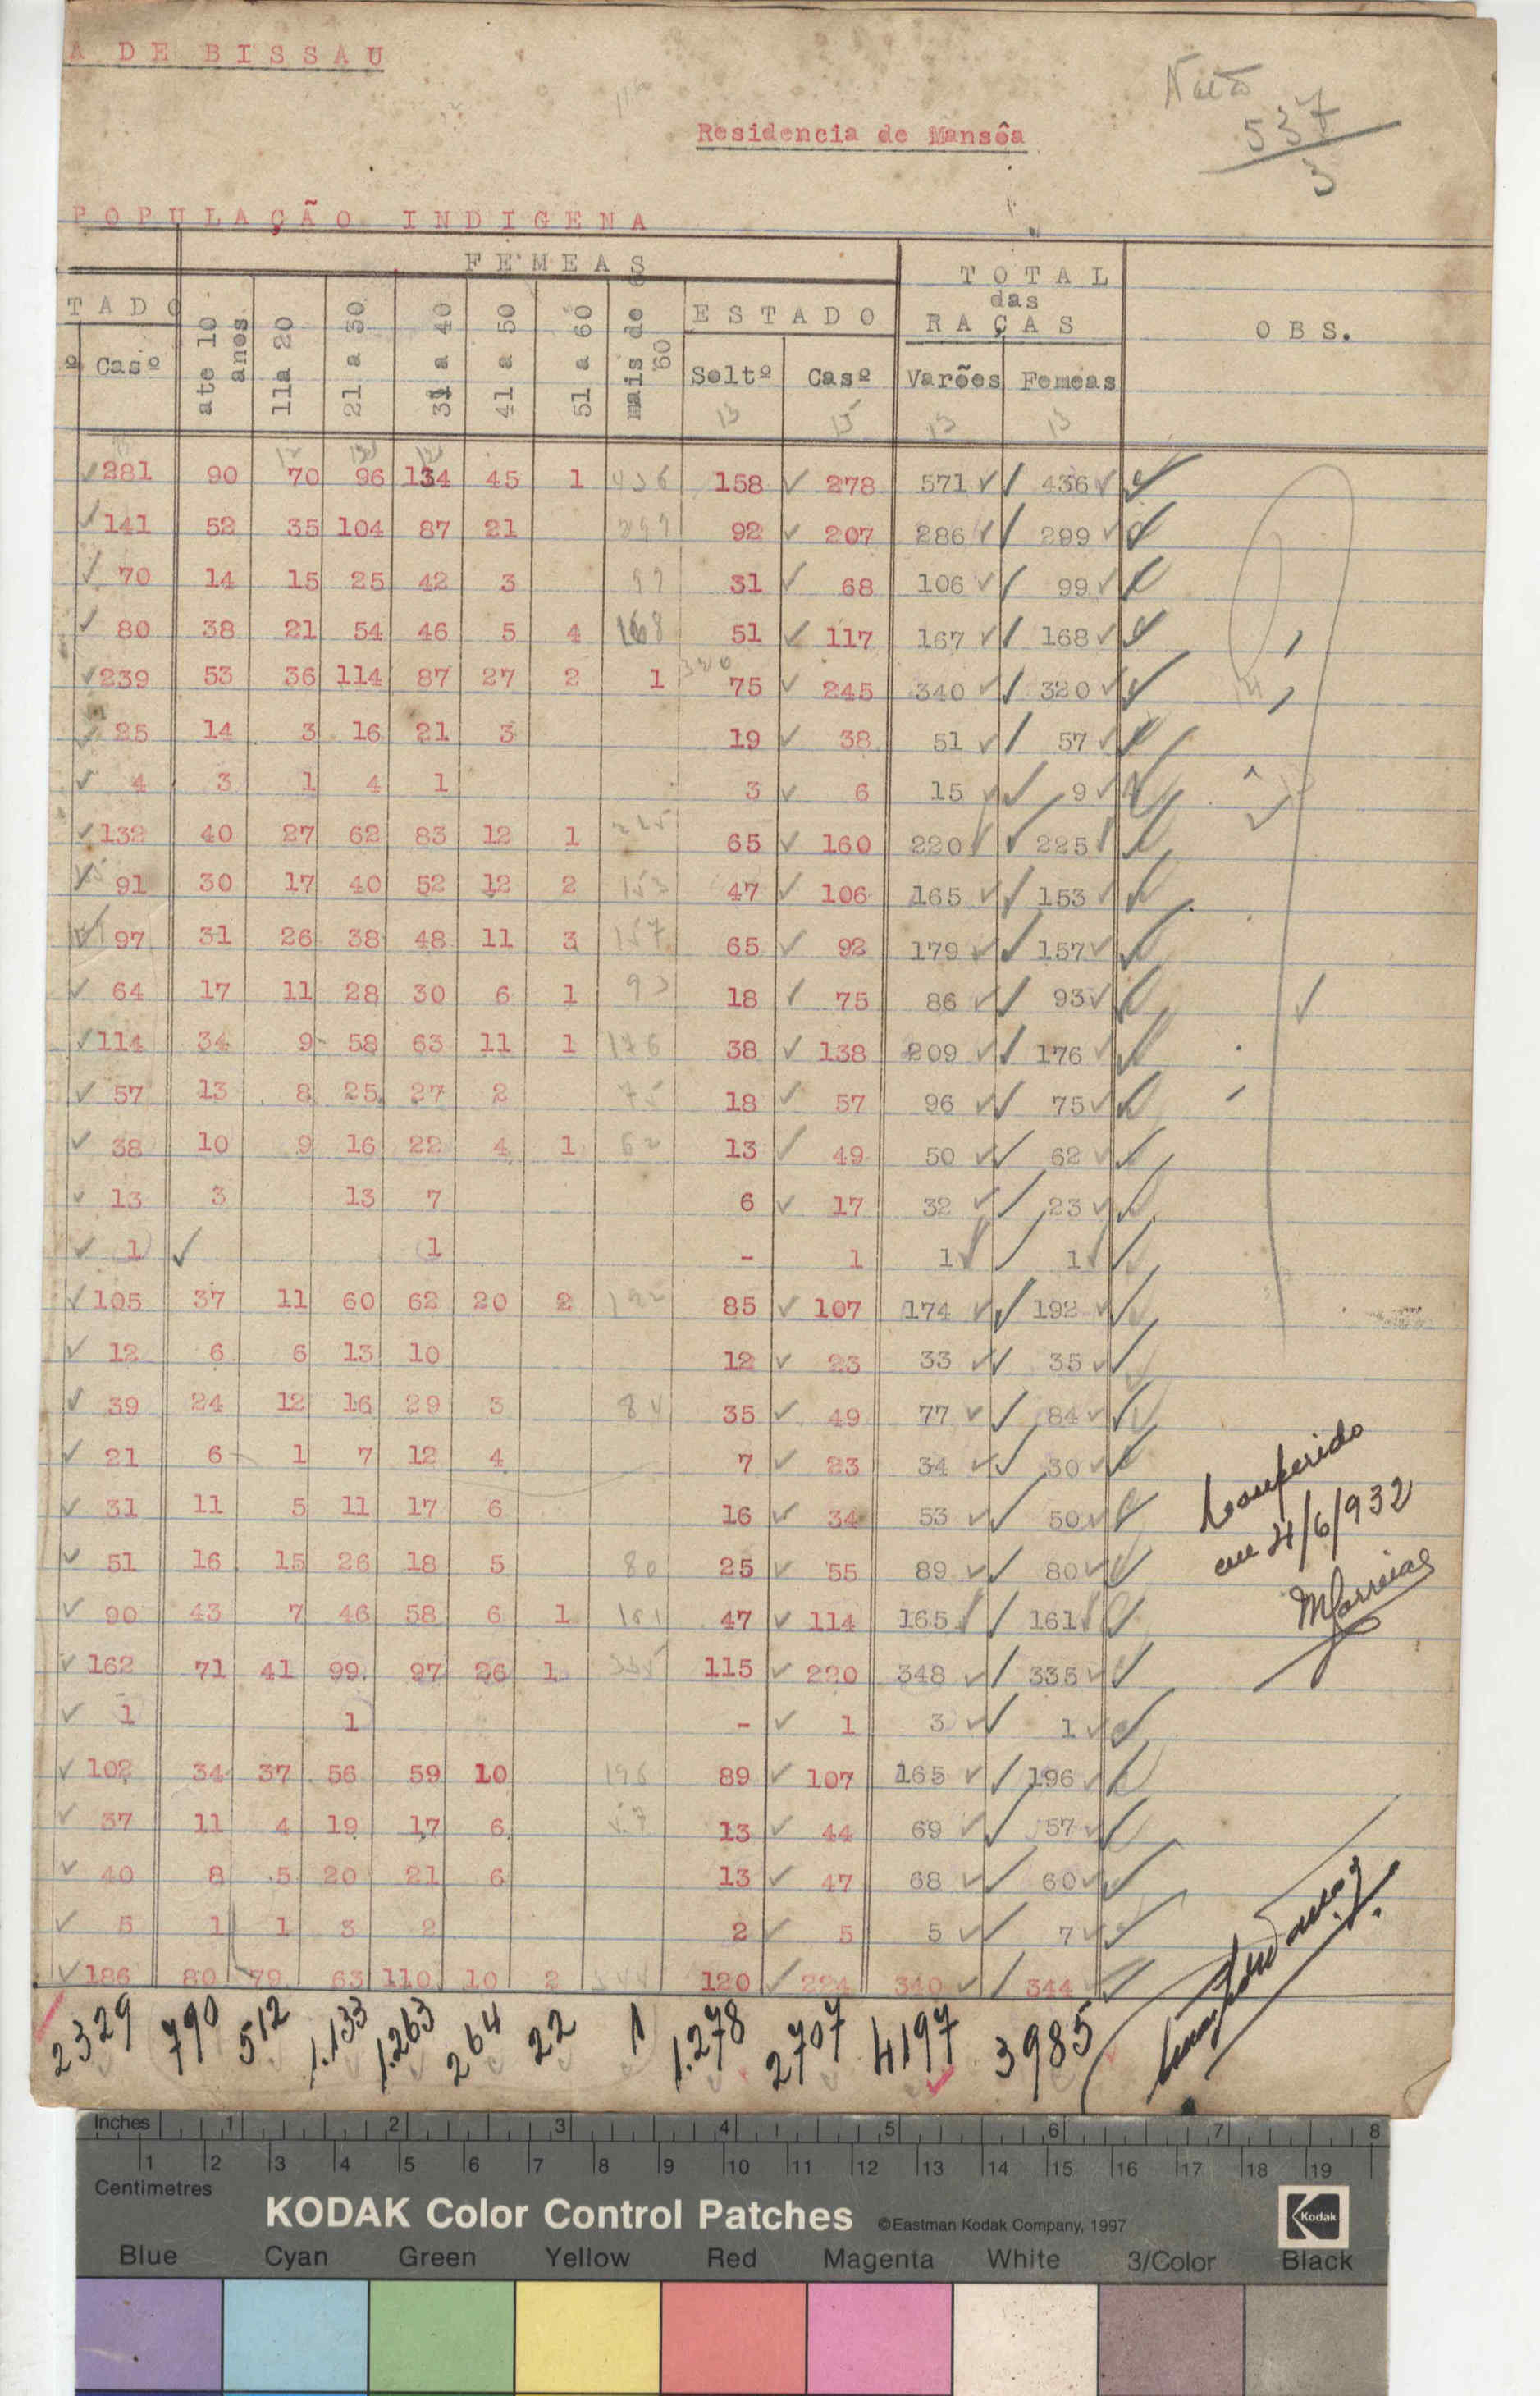 A DE BISSAU
Residencia de Mansôa
537
3
POPULAÇÃO INDIGENA
FEMEAS
TOTAL
das
RAÇAS
OBS.
TADO
ESTADO
º Casº ate 10 anos 11a 20 21 a 30 31 a 40 41 a 50 51 a 60 mais de 60 Soltº Casº Varões Femeas
13 15 13 13
281 90 70 96 134 45 1 436 158 278 571 436
141 52 35 104 87 21 299 92 207 286 299
70 14 15 25 42 3 99 31 68 106 99
80 38 21 54 46 5 4 168 51 117 167 168
239 53 36 114 87 27 2 1 320 75 245 340 320
25 14 3 16 21 3 19 38 51 57
4 3 1 4 1 3 6 15 9
132 40 27 62 83 12 1 225 65 160 220 225
91 30 17 40 52 12 2 153 47 106 165 153
97 31 26 38 48 11 3 157 65 92 179 157
64 17 11 28 30 6 1 93 18 75 86 93
114 34 9 58 63 11 1 176 38 138 209 176
57 13 8 25 27 2 75 18 57 96 75
38 10 9 16 22 4 1 62 13 49 50 62
13 3 13 7 6 17 32 23
1 1 - 1 1 1
105 37 11 60 62 20 2 192 85 107 174 192
12 6 6 13 10 12 23 33 35
39 24 12 16 29 3 84 35 49 77 84
21 6 1 7 12 4 7 23 34 30
31 11 5 11 17 6 16 34 53 50
51 16 15 26 18 5 80 25 55 89 80
90 43 7 46 58 6 1 161 47 114 165 161
162 71 41 99 97 26 1 335 115 220 348 335
1 1 - 1 3 1
102 34 37 56 59 10 196 89 107 165 196
37 11 4 19 17 6 57 13 44 69 57
40 8 5 20 21 6 13 47 68 60
5 1 1 3 2 2 5 5 7
186 80 79 63 110 10 2 344 120 224 340 344
2329 790 512 1.133 1.263 264 22 1 1.278 2707 4197 3985
Conferido
em 4/6/932
Inches 1 2 3 4 5 6 7 8
1 2 3 4 5 6 7 8 9 10 11 12 13 14 15 16 17 18 19
Centimetres
KODAK Color Control Patches ©Eastman Kodak Company, 1997 Kodak
Blue Cyan Green Yellow Red Magenta White 3/Color Black